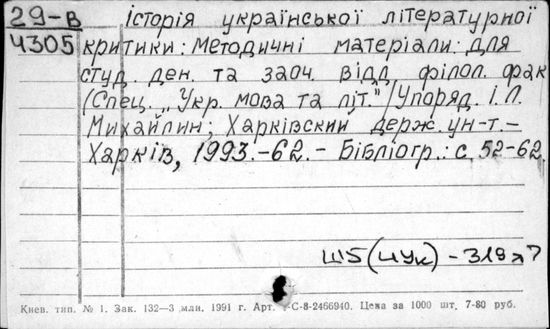 29-В історія української літературної
4305 критики: Методичні матеріали: для
студ. ден. та заоч. відд. філол. фак
/Спец. „Укр. мова та літ."/Упоряд. І.Л.
Михайлин; Харківский держ. ун-т.-
Харків, 1993.-62.- Бібліогр.: с. 52-62.
Ш5(4Ук)-319
Киев. тип. № 1. Зак. 132—3 млн. 1991 г. Арт. С-8-2466940. Цена за 1000 шт. 7-80 руб.